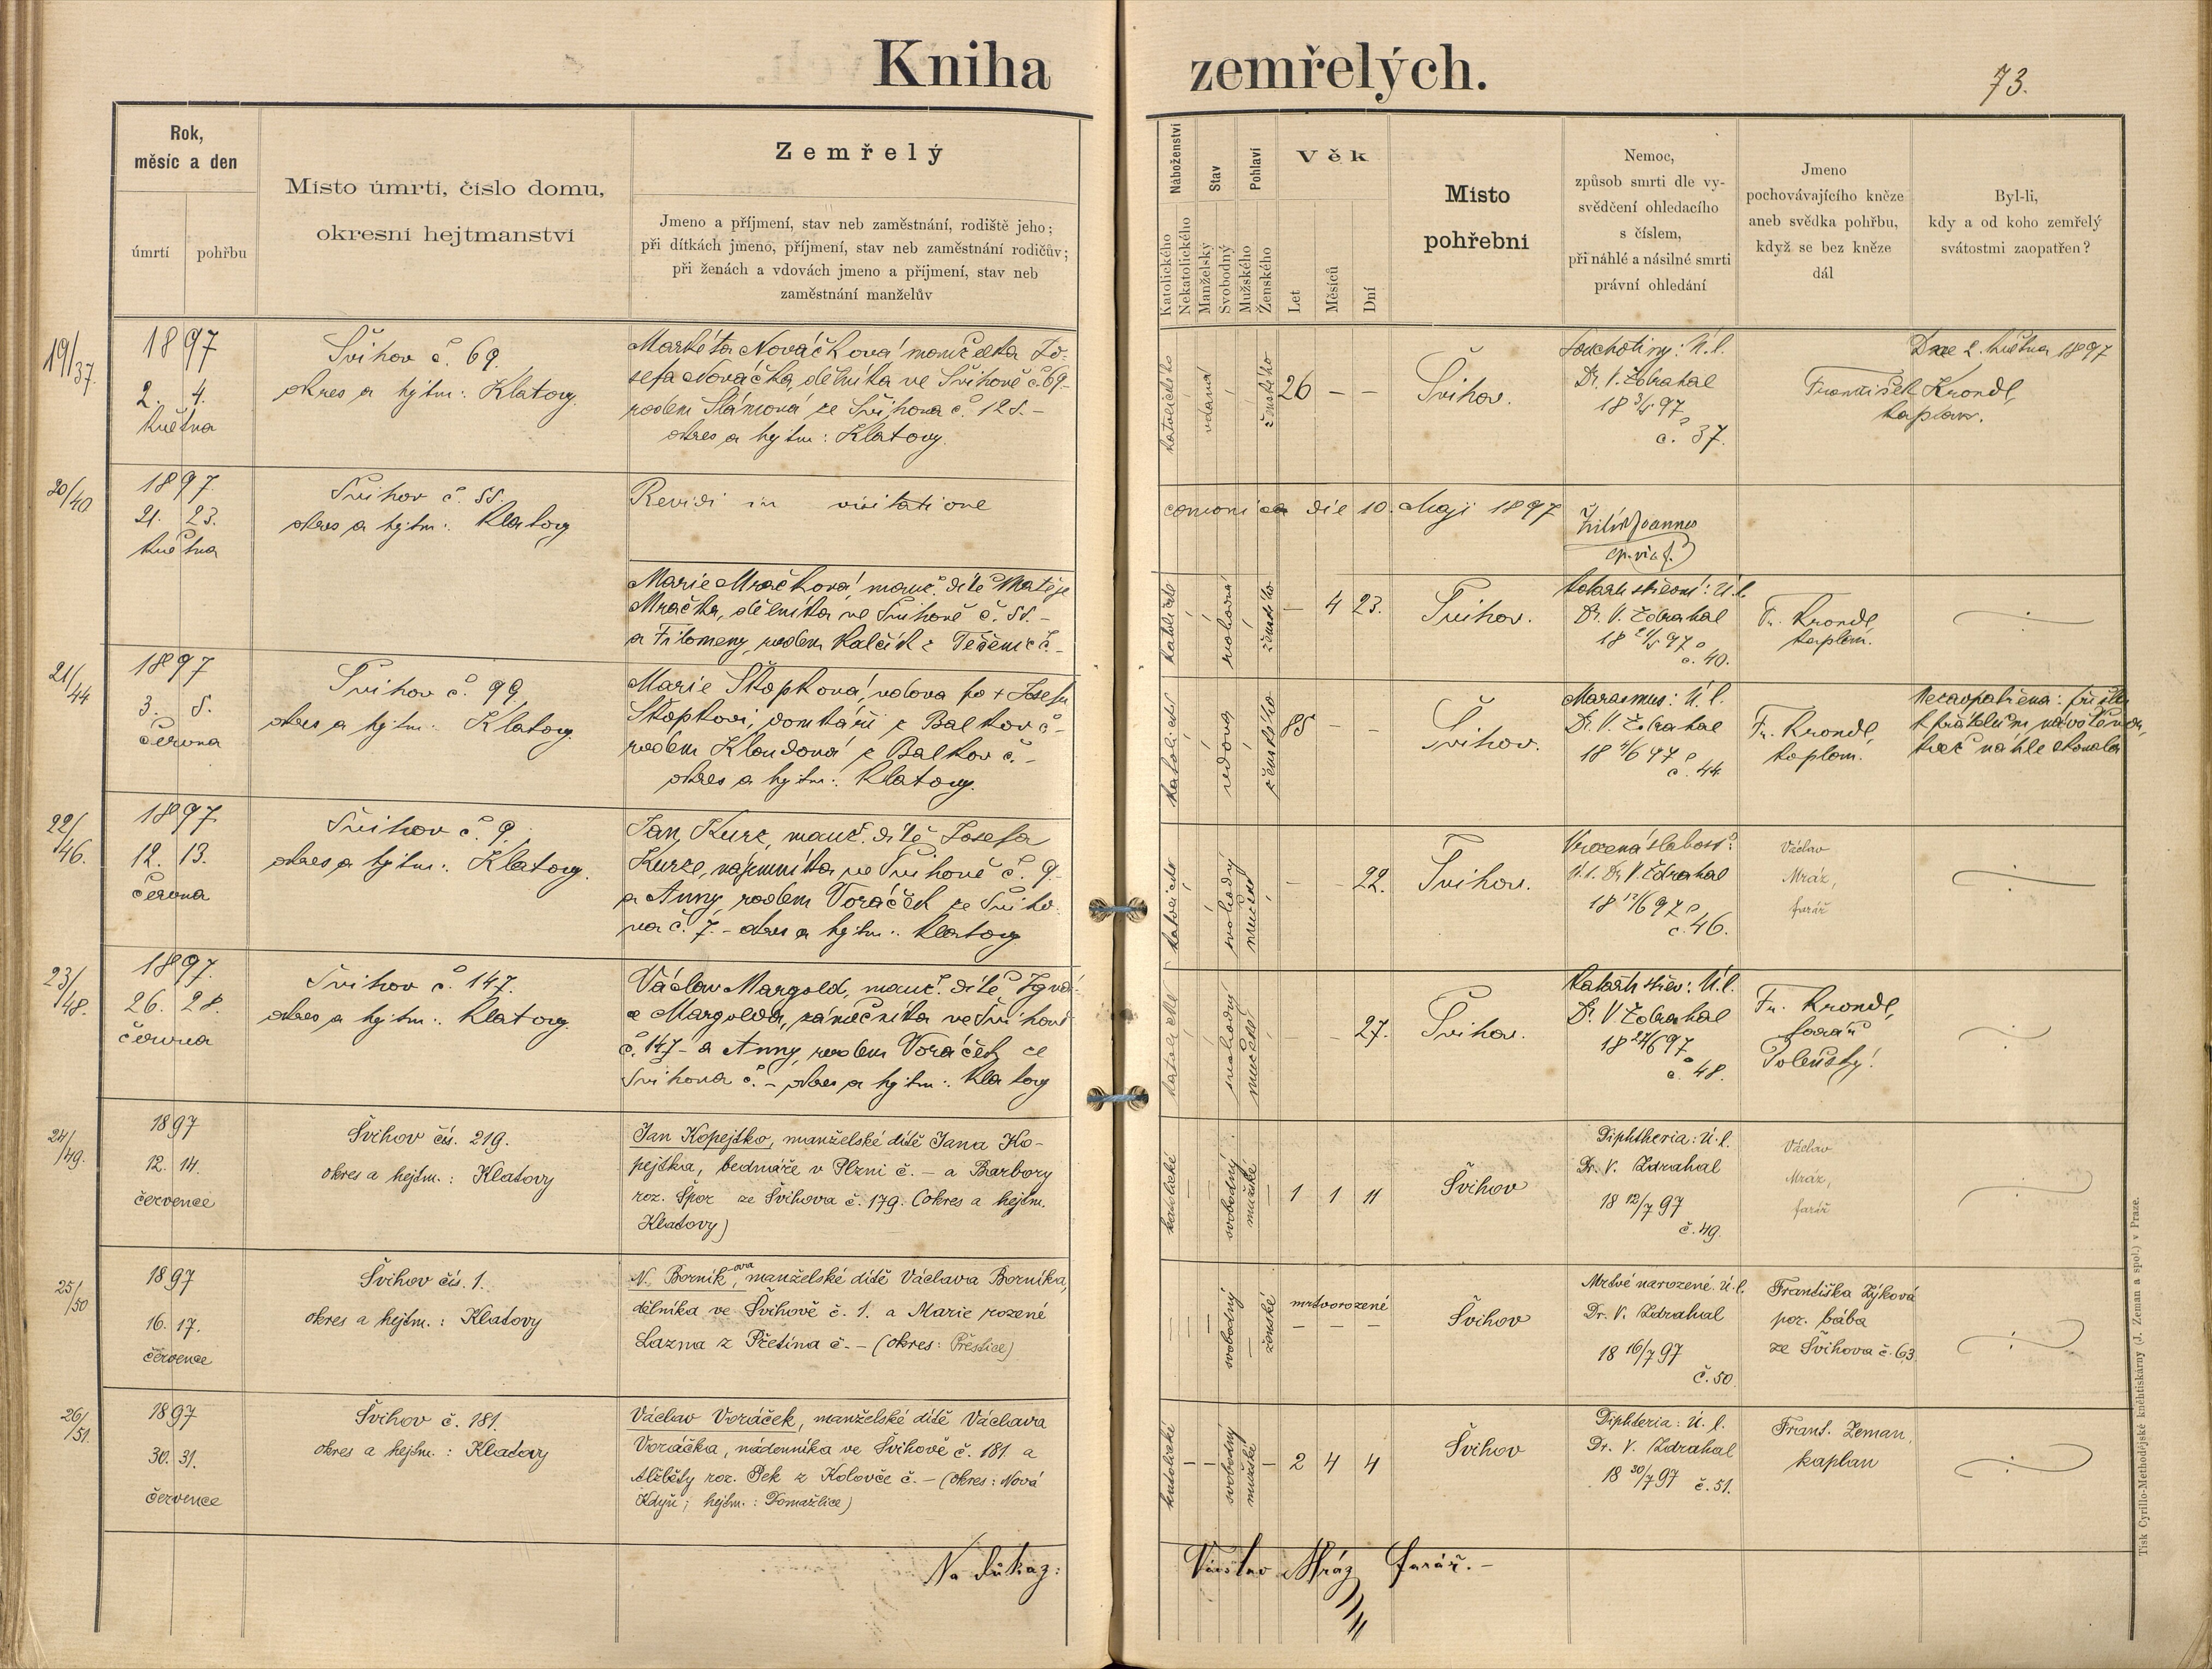 Kniha zemřelých.
73.
Rok,
měsíc a den
úmrtí
pohřbu
Místo úmrtí, číslo domu,
okresní hejtmanství
Zemřelý
Jmeno a příjmení, stav neb zaměstnání, rodiště jeho;
při dítkách jmeno, příjmení, stav neb zaměstnání rodičův;
při ženách a vdovách jmeno a příjmení, stav neb
zaměstnání manželův
Náboženství
Katolického
Nekatolického
Stav
Manželský
Svobodný
Pohlaví
Mužského
Ženského
Věk
Let
Měsíců
Dní
Místo
pohřební
Nemoc,
způsob smrti dle vy-
svědčení ohledacího
s číslem,
při náhlé a násilné smrti
právní ohledání
Jmeno
pochovávajícího kněze
aneb svědka pohřbu,
když se bez kněze
dál
Byl-li,
kdy a od koho zemřelý
svátostmi zaopatřen?
19/37.
1897
2. 4.
května
Švihov č. 69.
okres a hejtm: Klatovy.
Markéta Nováčková manželka Jo-
sefa Nováčka, dělníka ve Švihově č. 69.-
rodem Slámová ze Švihova č. 125.-
okres a hejtm: Klatovy.
katolického
vdaná
ženského
26 - -
Švihov.
Souchotiny: Ú.l.
Dr. V. Zdrahal
18 3/5 97
č. 37.
Dne 2. května 1897
František Krondl,
kaplan.
20/40
1897.
21. 23.
května
Švihov č. 55.
okres a hejtm.: Klatovy
Revidi in visitatione
canonica die 10. Maji 1897
Joannes
Marie Mračková, manž. dítě Matěje
Mračka, dělníka ve Švihově č. 55.-
a Filomeny, rodem Kalčík z Těšenic č.-
katolické
svobodná
ženského
- 4 23.
Švihov.
Katarh střevní: Ú.l.
Dr. V. Zdrahal
18 21/5 97
č. 40.
Fr. Krondl
kaplan.
21/44
1897
3. 5.
června
Švihov č. 99.
okres a hejtm: Klatovy.
Marie Škopková, vdova po + Josefu
Škopkovi, domkáři z Balkov č.-
rodem Kloudová z Balkov č.-
okres a hejtm.: Klatovy.
katolické
vdova
ženského
85 - -
Švihov.
Marasmus: Ú.l.
Dr. V. Zdrahal
18 4/6 97
č. 44.
Fr. Krondl,
kaplan.
Nezaopatřena: přišla
k přátelům návštěvou,
kdež náhle skonala
22/46.
1897.
12. 13.
června
Švihov č. 9.
okres a hejtm.: Klatovy.
Jan Kurz, manž. dítě Josefa
Kurze, nájemníka ve Švihově č. 9.
a Anny, rodem Voráček ze Šviho-
va č. 7.- okres a hejtm.: Klatovy
katolické
svobodný
mužské
- - 22.
Švihov.
Vrozená slabost:
Ú.l. Dr. V. Zdrahal
18 12/6 97
č. 46.
Václav
Mráz,
farář
23/48.
1897.
26. 28.
června
Švihov č. 147.
okres a hejtm.: Klatovy.
Václav Margold, manž. dítě Igná-
ce Margolda, zámečníka ve Švihově
č. 147- a Anny, rodem Voráček ze
Švihova č.- okres a hejtm.: Klatovy
katolické
svobodný
mužské
- - 27.
Švihov.
Katarh střev: Ú.l.
Dr. V. Zdrahal
18 27/6 97
č. 48.
Fr. Krondl,
farář
Poleňský!
24/49.
1897
12. 14.
července
Švihov čís. 219.
okres a hejtm.: Klatovy
Jan Kopejtko, manželské dítě Jana Ko-
pejtka, bednáře v Plzni č. - a Barbory
roz. Špor ze Švihova č. 179. (okres a hejtm.
Klatovy)
katolické
svobodný
mužské
1 1 11
Švihov
Diphtheria: Ú.l.
Dr. V. Zdrahal
18 12/7 97
č. 49.
Václav
Mráz,
farář
25/50
1897
16. 17.
července
Švihov čís. 1.
okres a hejtm.: Klatovy
N. Borníkova, manželské dítě Václava Borníka,
dělníka ve Švihově č. 1. a Marie rozené
Lazna z Přetína č. - (okres: Přeštice)
svobodný
ženské
mrtvorozené
- - -
Švihov
Mrtvé narozené. Ú.l.
Dr. V. Zdrahal
18 16/7 97
č. 50.
Františka Zýková
por. bába
ze Švihova č. 63.
26/51.
1897
30. 31.
července
Švihov č. 181.
okres a hejtm.: Klatovy
Václav Voráček, manželské dítě Václava
Voráčka, nádenníka ve Švihově č. 181. a
Alžběty roz. Pek z Kolovče č. - (okres: Nová
Kdyň; hejtm.: Domažlice)
katolické
svobodný
mužské
2 4 4
Švihov
Diphteria: Ú.l.
Dr. V. Zdrahal
18 30/7 97 č. 51.
Frant. Zeman,
kaplan
Na důkaz: Václav Mráz farář.-
Tisk Cyrillo-Methodějské knihtiskárny (J. Zeman a spol.) v Praze.